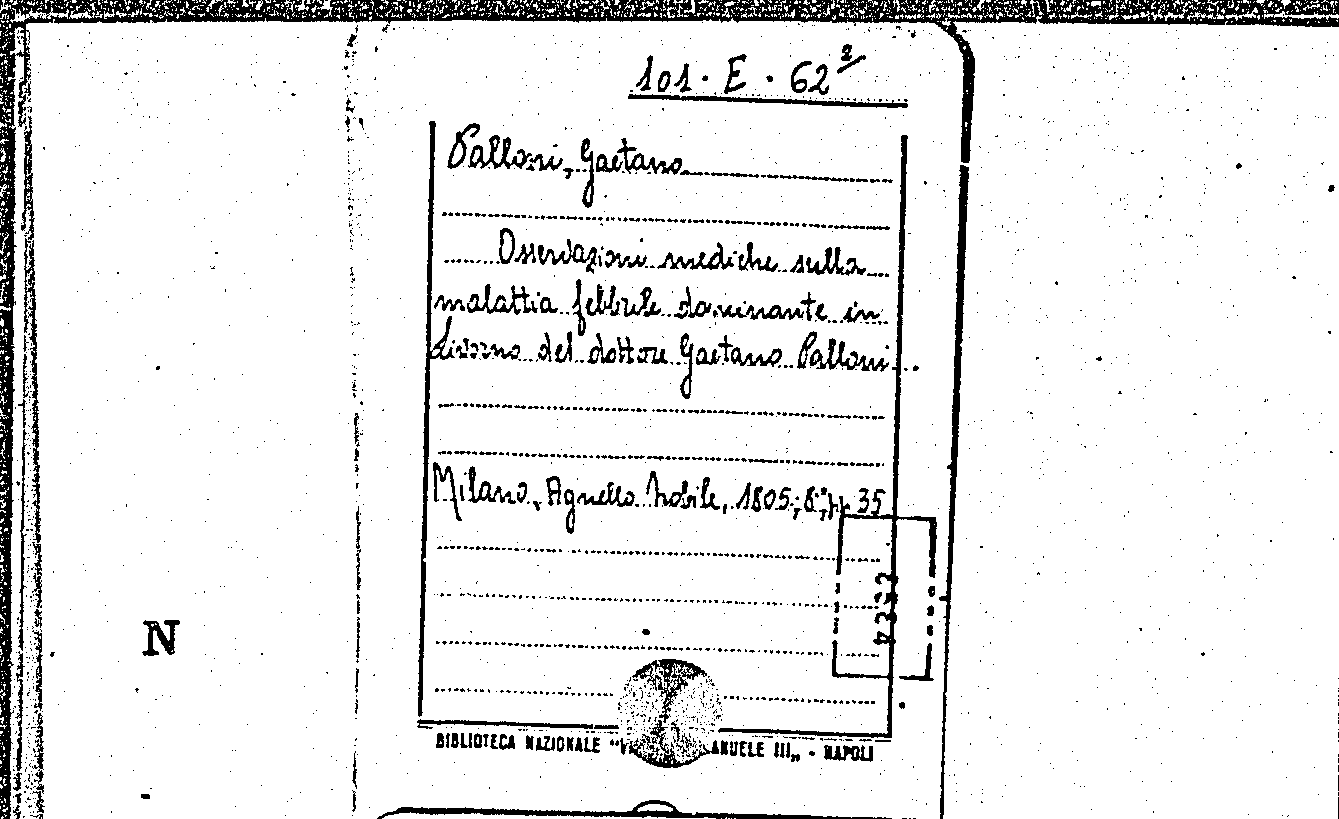 101 · E · 62²
Palloni, Gaetano
Osservazioni mediche sulla
malattia febbrile dominante in
Livorno del dottore Gaetano Palloni.
Milano, Agnello Nobile, 1805; 8°; pp. 35
N
BIBLIOTECA NAZIONALE "V ANUELE III„ - NAPOLI